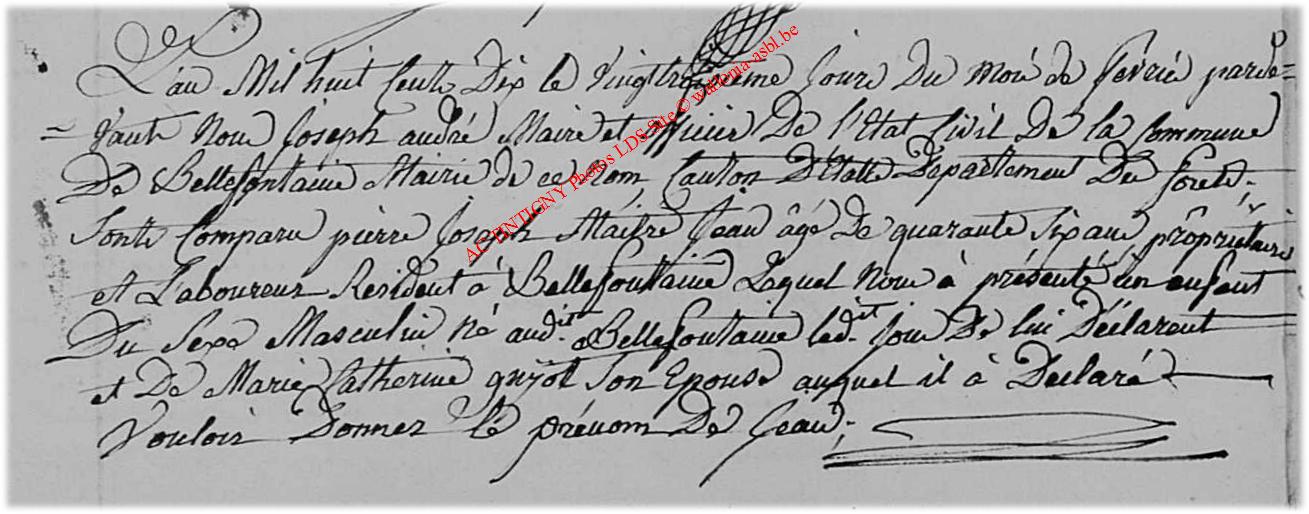 L'an Mil huit Cents Dix le Vingt troisieme Jour Du moi de fevrié parde=
=Vant Nous Joseph andré Maire et officier De l'Etat Civil De la Commune
De Bellefontaine Mairie de ce Nom, Canton D'Etalle Departement Des forêts,
Sont Comparu pierre Joseph Maître Jean âgé De quarante Six ans propriétaire
et Laboureur Resident à Bellefontaine Lequel Nous à présenté un enfant
Du Sexe Masculin né audit Bellefontaine ledit Jour De lui Déclarent
et De Marie Catherine guyot Son Epouse auquel il à Declaré
Vouloir Donner le prénom De Jean.
AC TINTIGNY Photos LDS Site © waliema-asbl.be